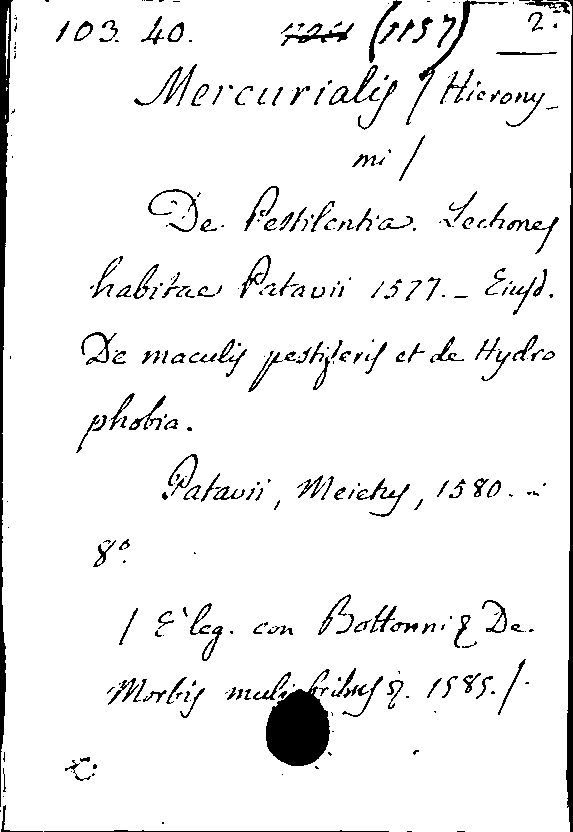 103. 40. (1157) 2.
Mercurialis / Hierony-
mi /
De Pestilentia. Lectiones
habitae Patavii 1577. - Eiusd.
De maculis pestiferis et de Hydro
phobia.
Patavii, Meietus, 1580. in
8°.
/ E' leg. con Bottonni De
Morbis muliebribus 1585. /.